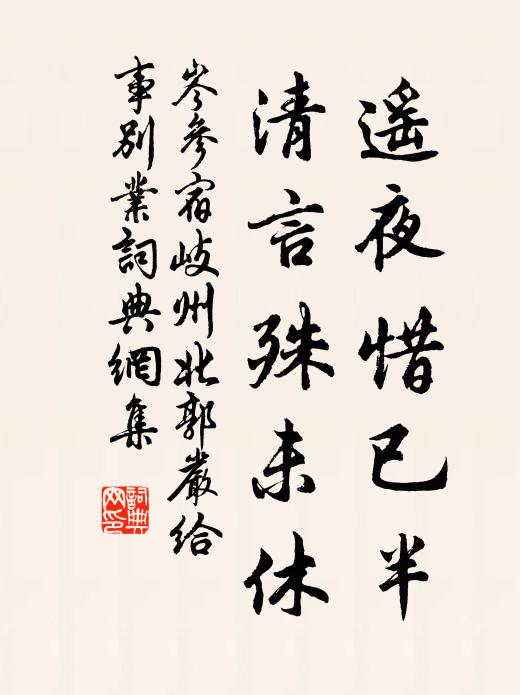 遥夜惜已半
清言殊未休
岑參宿岐州北郭嚴給
事別業詞典網集
詞典网印